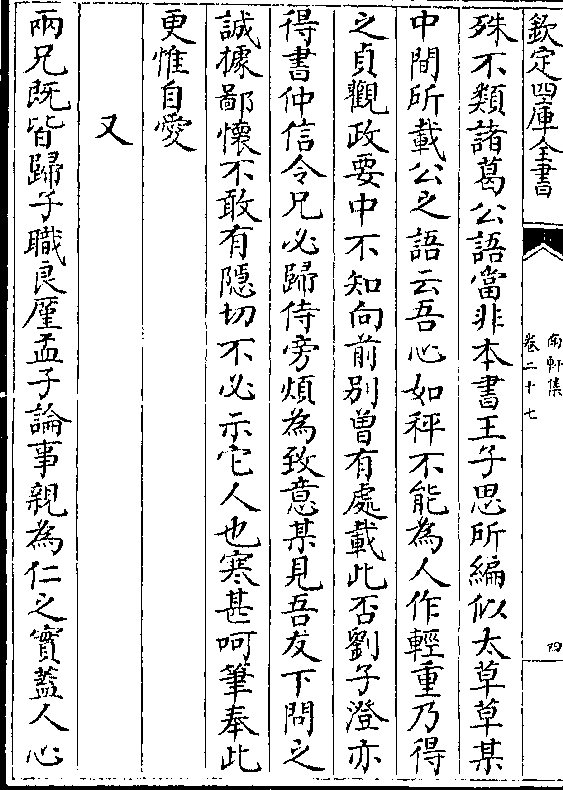 欽定四庫全書
南軒集
卷二十七
四
殊不類諸葛公語當非本書王子思所編似太草草某
中間所載公之語云吾心如秤不能為人作輕重乃得
之貞觀政要中不知向前別曾有處載此否劉子澄亦
得書仲信令兄必歸侍旁煩為致意某見吾友下問之
誠據鄙懷不敢有隠切不必示它人也寒甚呵筆奉此
更惟自愛
又
兩兄既皆歸子職良厪孟子論事親為仁之實蓋人心